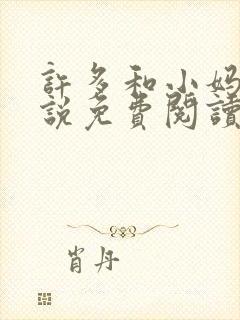 許多和小妈
說免費閱讀
肖丹